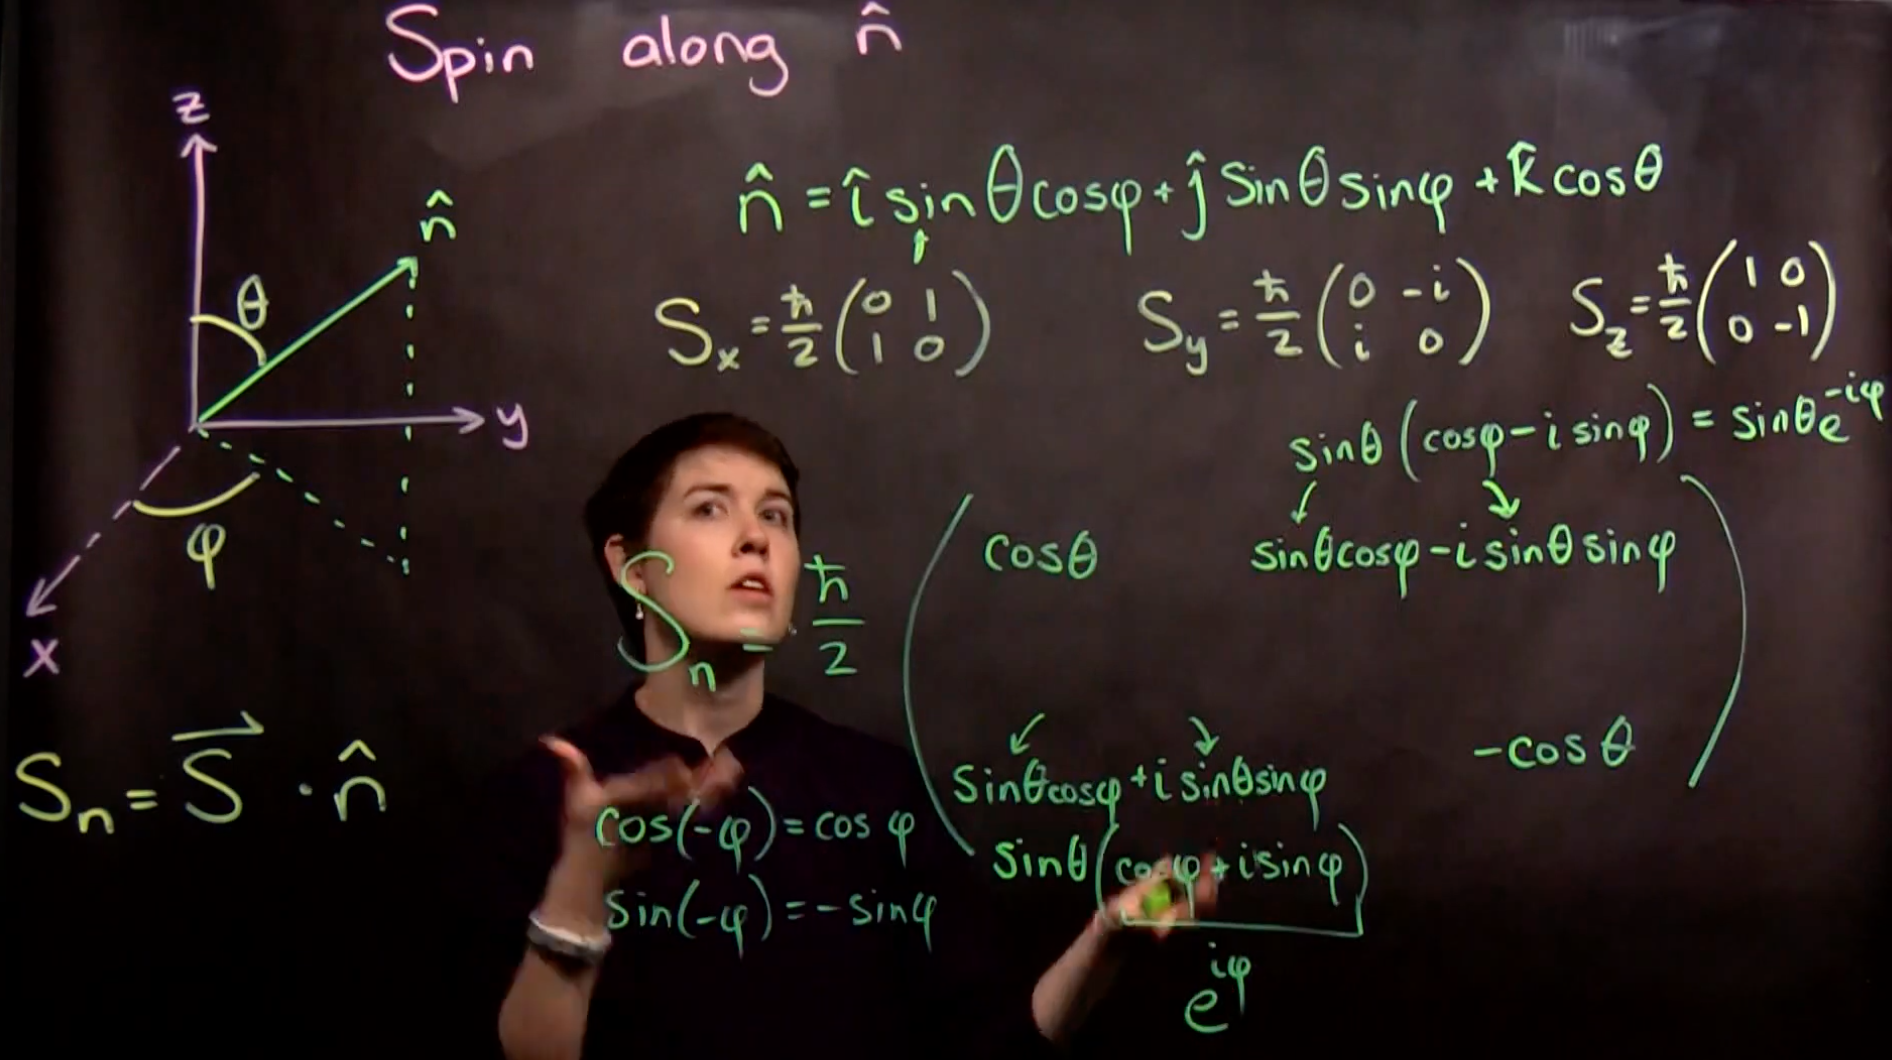 Spin along n̂
z
n̂
θ
y
φ
x
n̂ = î sinθcosφ + ĵ sinθsinφ + k̂ cosθ
Sx = ħ/2 (0 1 1 0)
Sy = ħ/2 (0 -i i 0)
Sz = ħ/2 (1 0 0 -1)
sinθ(cosφ - i sinφ) = sinθe^-iφ
Sn = ħ/2
cosθ
sinθcosφ - i sinθ sinφ
sinθcosφ + i sinθsinφ
-cosθ
sinθ(cosφ + i sinφ)
e^iφ
Sn = S⃗ · n̂
cos(-φ) = cos φ
sin(-φ) = - sinφ